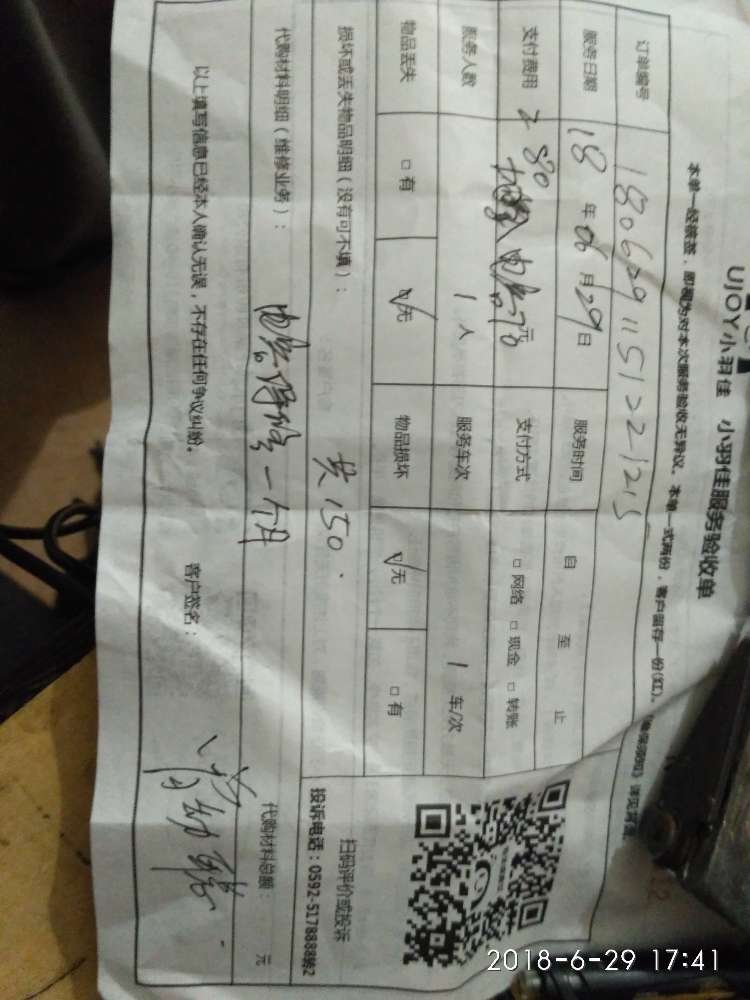 UJOY小羽佳 小羽佳服务验收单
本单一经签签，即视为对本次服务验收无异议。本单一式两份，客户留存一份(红)。
订单编号 1806291151221215
服务日期 18年06月29日 服务时间 自 至 止
支付费用 280 元 支付方式 □网络 □现金 □转账
服务人数 1人 服务车次 1车/次
物品丢失 □有 √无 物品损坏 √无 □有
损坏或丢失物品明细（没有可不填）：
共150.
扫码评价或投诉
投诉电话：0592-5178888转2
代购材料明细（维修业务）：
一个月
代购材料总额： 元
以上填写信息已经本人确认无误，不存在任何争议纠纷。 客户签名：
2018-6-29 17:41